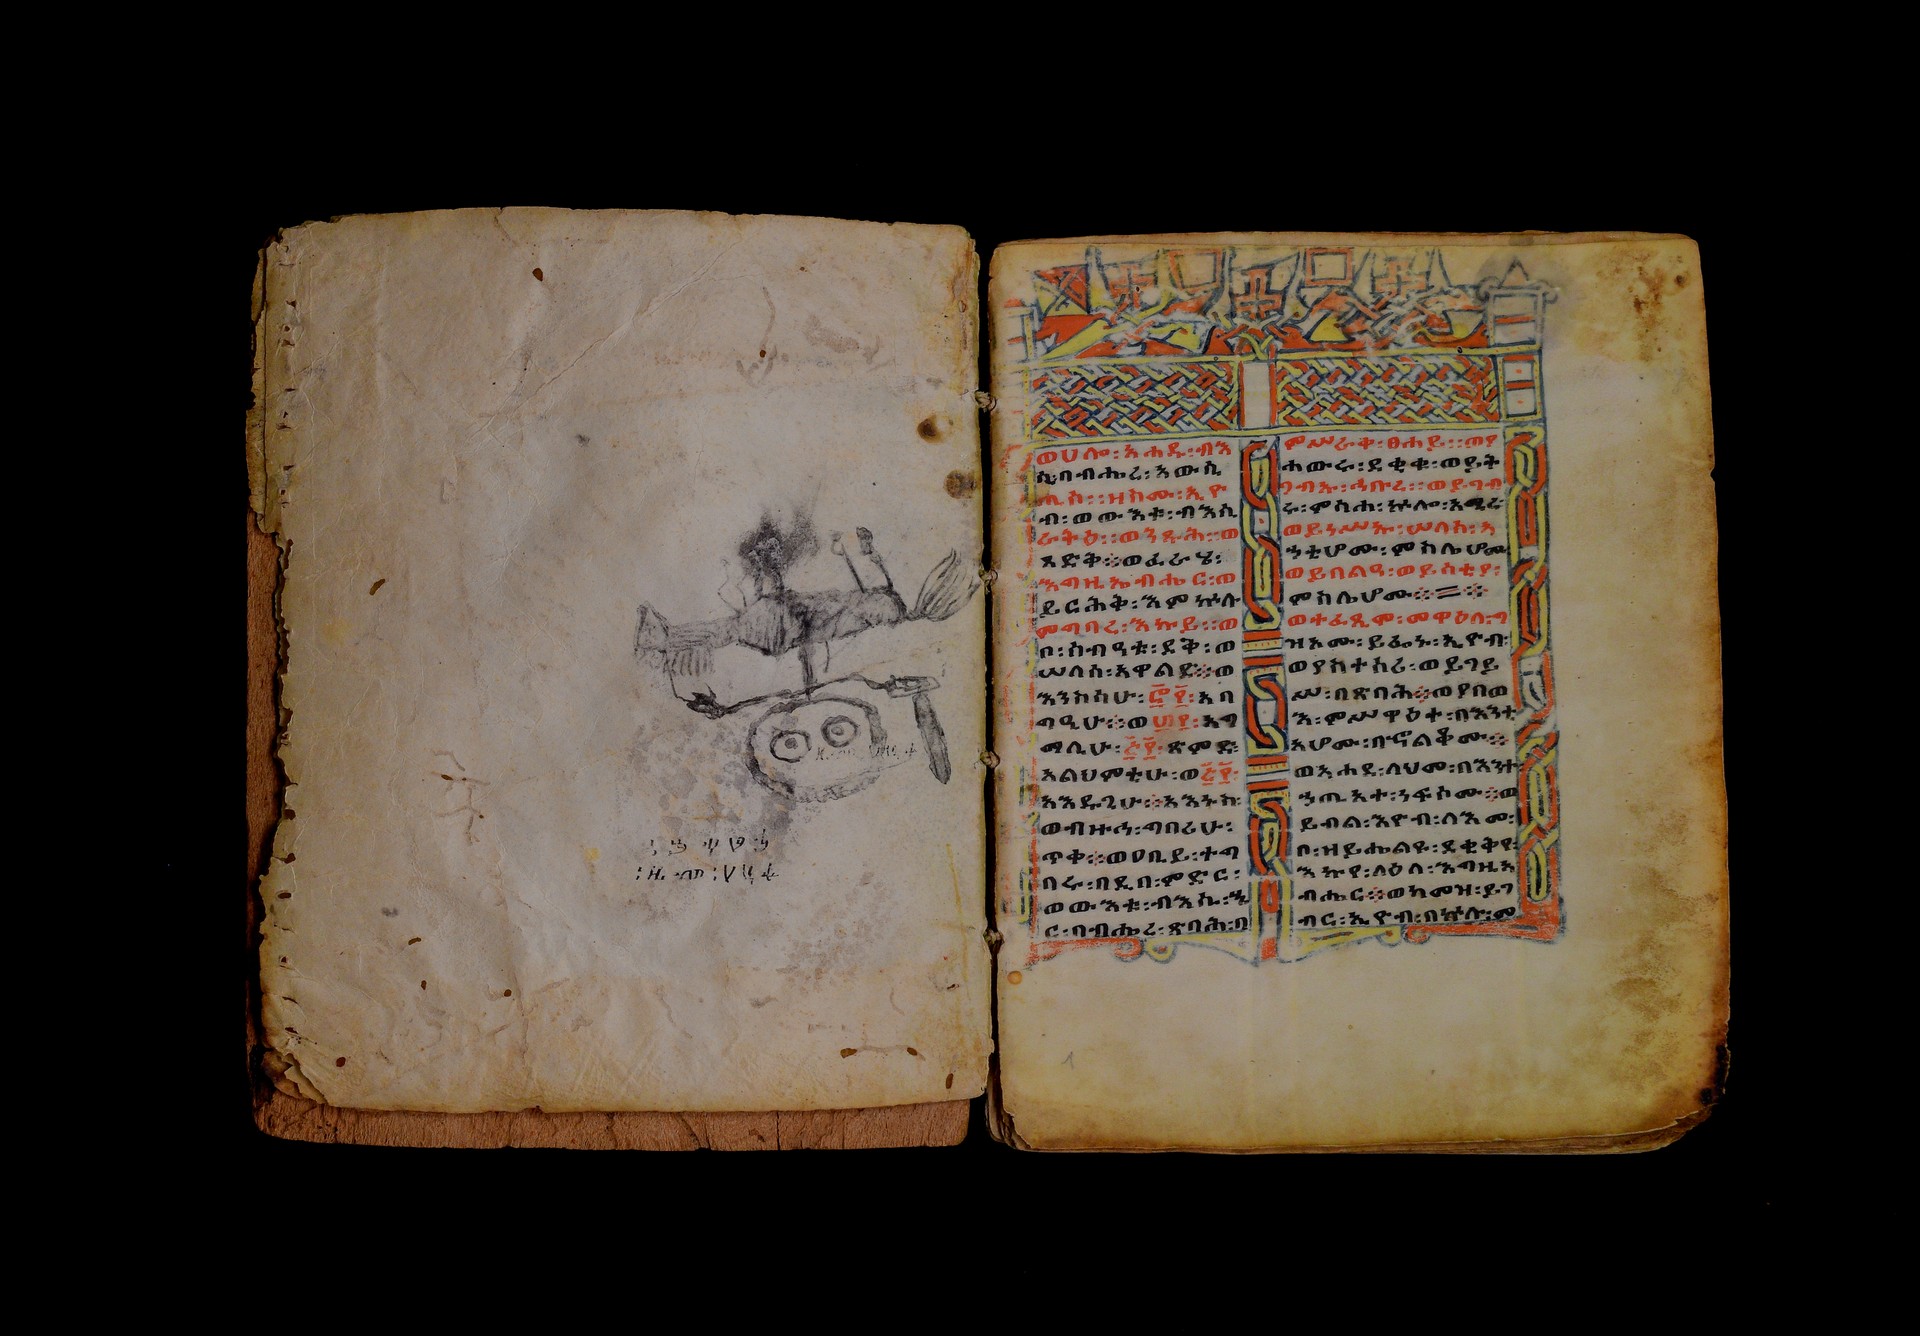 ወሀሎ፡አሐዱ፡ብእ
ሲ፡በብሔረ፡አውሲ
ጢስ፡፡ዘስሙ፡ኢዮ
ብ፡ወውእቱ፡ብእሲ
ራትዕ፡፡ወንጹሕ፡፡ወ
ጻድቅ፡፡ወፈራሄ፡
እግዚኤብሔር፡ወ
ይርሕቅ፡እምኵሉ
ምግባረ፡እኩይ፡፡ወ
ቦ፡ስብዓቱ፡ደቅ፡ወ
ሠላስ፡አዋልድ፡፡ወ
እንስሳሁ፡፸፻፡አባ
ግዒሁ፡፡ወ፴፻፡አግ
ማሊሁ፡፭፻፡ጽምድ፡
አልህምቲሁ፡ወ፭፻፡
አእዱጊሁ፡፡
ወብዙኅ፡ግበሪሁ፡
ጥቀ፡፡ወዐቢይ፡ተግ
ባሩ፡በዲበ፡ምድር፡
ወውእቱ፡ብእሲ፡ኄ
ር፡በብሔረ፡ጽባሕ፡በ
ምሥራቀ፡ፀሐይ፡፡ወየ
ሐውሩ፡ደቂቁ፡ወይት
ጋብኡ፡ኅቡረ፡፡ወይገብ
ሩ፡ምስሐ፡ኵሎ፡አሚረ
ወይነሥኡ፡ሠላስ፡አ
ኃቲሆሙ፡ምስሌሆሙ
ወይበልዓ፡ወይስቲያ፡
ምስሌሆሙ፡፡=፡፡
ወተፈጺሞ፡መዋዕለ፡ግ
ዝአሙ፡ይፌኑ፡ኢዮብ፡
ወያስተስሪ፡ወይገይ
ሥ፡በጽባሕ፡፡ወያበወ
እ፡ምሥዋዕተ፡በእንቲ
አሆሙ፡በኆልቆሙ፡፡
ወአሐደ፡ላህመ፡በእንተ
ኃጢአተ፡ነፍሶሙ፡፡ወ
ይብል፡ኢዮብ፡ለእመ፡
ቦ፡ዘይሔልዩ፡ደቂቅየ፡
እኩየ፡ላዕለ፡እግዚአ
ብሔር፡፡ወከመዝ፡ይገ
ብር፡ኢዮብ፡በኵሉ፡መ